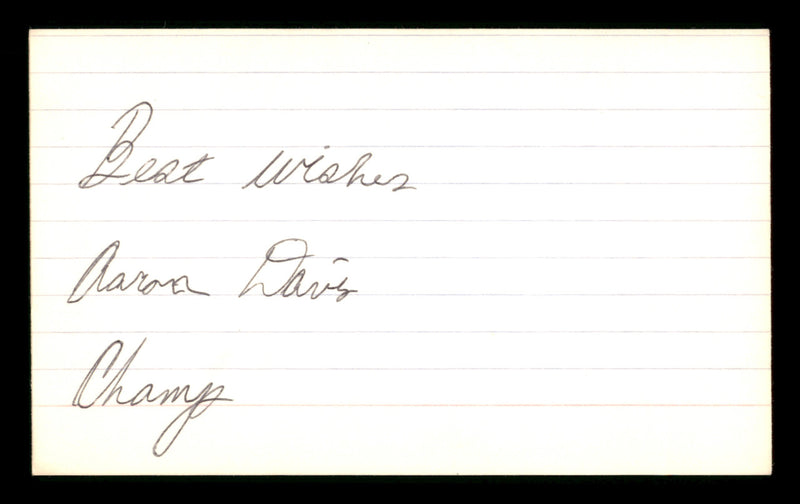 Best Wishes
Aaron Davis
Champ